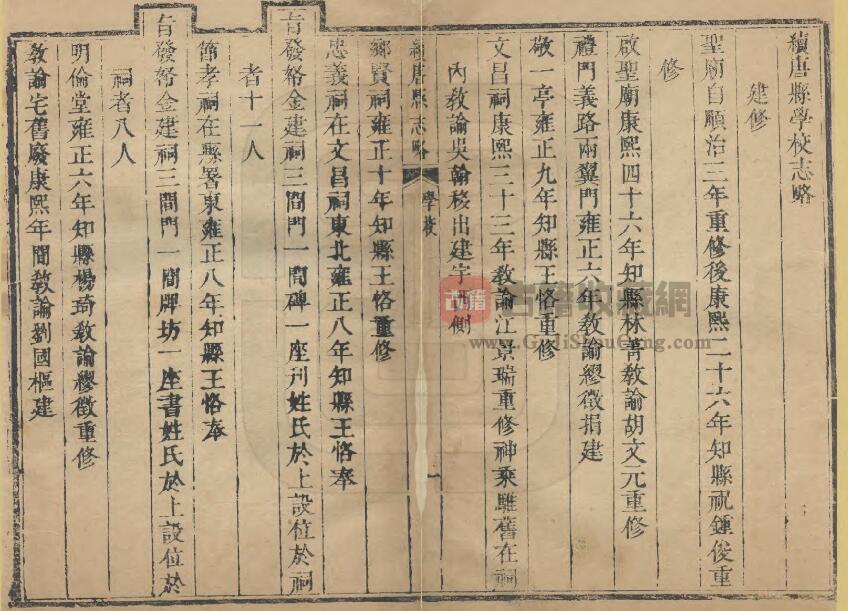 續唐縣學校志略
建修
聖廟自順治二年重修後康熙二十六年知縣祝鍾俊重
修
啟聖廟康熙四十六年知縣林菁教諭胡文元重修
禮門義路兩翼門雍正六年教諭繆徵捐建
敬一亭雍正九年知縣王恪重修
文昌祠康熙三十三年教諭江景瑞重修神乘騅舊在祠
內教諭吳翰移出建宇西側
續唐縣志略
學校
一
鄉賢祠雍正十年知縣王恪重修
忠義祠在文昌祠東北雍正八年知縣王恪奉
旨發帑金建祠三間門一間碑一座刊姓氏於上設位於祠
者十一人
節孝祠在縣署東雍正八年知縣王恪奉
旨發帑金建祠三間門一間牌坊一座書姓氏於上設位於
祠者八人
明倫堂雍正六年知縣楊琦教諭繆徵重修
教諭宅舊廢康熙年間教諭劉國樞建
古籍
古籍收藏網
www.GuJiShouCang.com